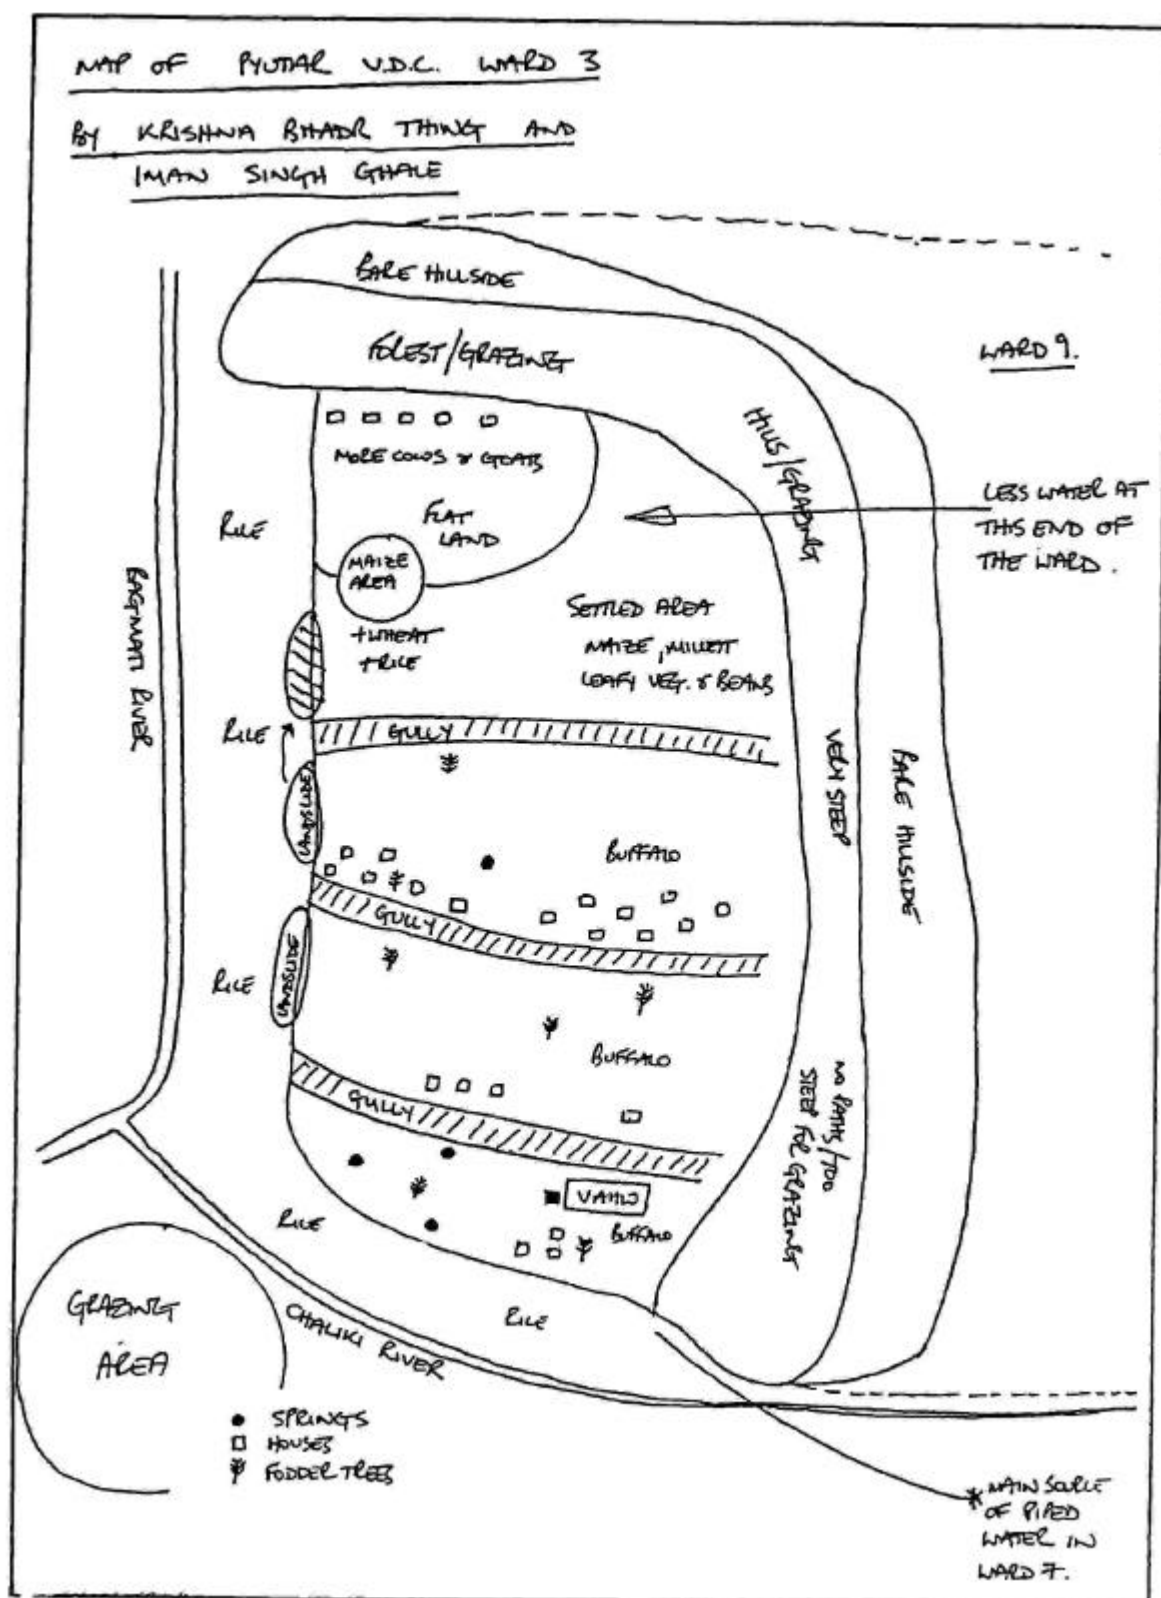 MAP OF PYUTAR V.D.C. WARD 3
BY KRISHNA BHADR THING AND
IMAN SINGH GHALE
BARE HILLSIDE
FOREST/GRAZING
WARD 9.
HILLS/GRAZING
MORE COWS & GOATS
LESS WATER AT
THIS END OF
THE WARD.
RICE
FLAT
LAND
MAIZE
AREA
BAGMATI RIVER
SETTLED AREA
MAIZE, MILLETT
LEAFY VEG. & BEANS
+WHEAT
+RICE
RICE
GULLY
VERY STEEP
BARE HILLSIDE
LANDSLIDE
BUFFALO
GULLY
RICE
LANDSLIDE
BUFFALO
GULLY
NO PATHS/TOO
STEEP FOR GRAZING
RICE
BUFFALO
GRAZING
AREA
CHALIKI RIVER
RICE
SPRINGS
HOUSES
FODDER TREES
MAIN SOURCE
OF PIPED
WATER IN
WARD 7.